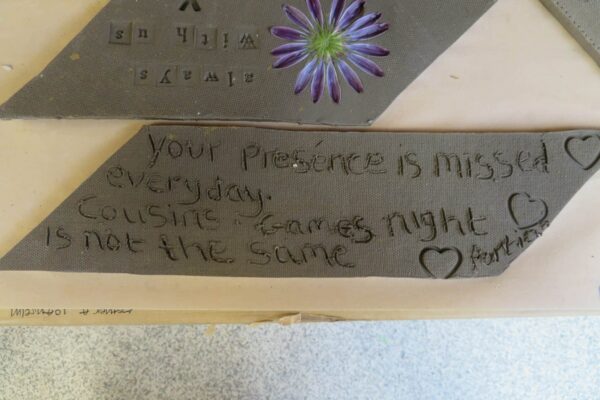 always
with us
your presence is missed
everyday.
Cousins - Games night
is not the same